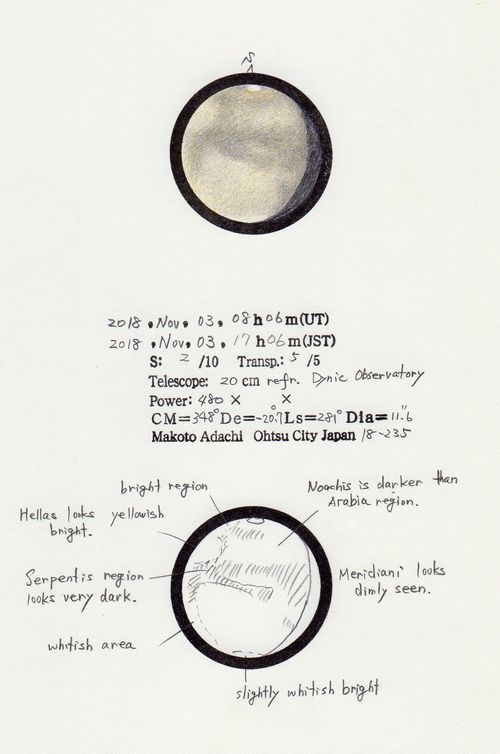 S
2018, Nov, 03, 08h06m(UT)
2018, Nov, 03, 17h06m(JST)
S: 2 /10 Transp.: 5 /5
Telescope: 20 cm refr. Dynic Observatory
Power: 480 × ×
CM=348° De=-20.7° Ls=281° Dia=11.6"
Makoto Adachi Ohtsu City Japan 18-235
bright region
Noachis is darker than
Arabia region.
Hellas looks yellowish
bright.
Serpentis region
looks very dark.
Meridiani looks
dimly seen.
whitish area
slightly whitish bright